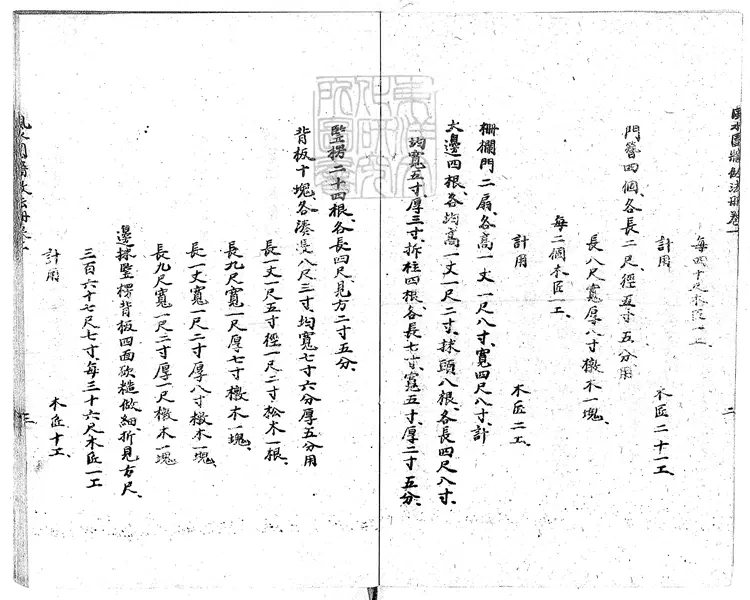 每四十尺木匠一工
計用
木匠二十一工
門簪四個各長二尺徑五寸五分用
長八尺寬厚八寸檄木一塊
每二個木匠一工
計用
木匠二工
柵欄門二扇各高一丈一尺八寸寬四尺八寸計
大邊四根各均高一丈一尺二寸抹頭八根各長四尺八寸
均寬五寸厚三寸拆柱四根各長七寸寬五寸厚二寸五分
豎楞二十四根各長四尺見方二寸五分
背板十塊各湊長八尺三寸均寬七寸六分厚五分用
長一丈一尺五寸徑一尺二寸松木一根
長九尺寬一尺厚七寸檄木一塊
長一丈寬一尺二寸厚八寸檄木一塊
長九尺寬一尺二寸厚一尺檄木一塊
邊抹豎楞背板四面砍糙做細折見方尺
三百六十七尺七寸每三十六尺木匠一工
計用
木匠十工
二
三